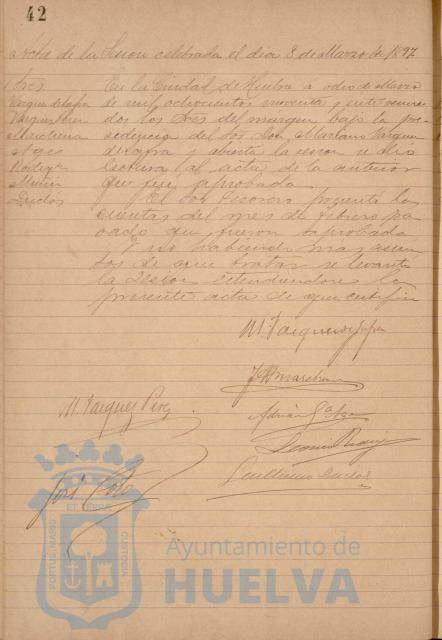 42
Acta de la Sesion celebrada el dia 8 de Marzo de 1897
Sres
Vazquez de Zafra
Vazquez Perez
Marchena
Rodrig.z
Muñiz
Duclós
En la Ciudad de Huelva á ocho de Marzo
de mil ochocientos noventa y siete reuni
dos los Sres del margen bajo la pre
sidencia del Sor Don Mariano Vazquez
de Zafra y abierta la sesion se dió
lectura al acta de la anterior
que fué aprobada.
El Sor Tesorero presentó las
cuentas del mes de Febrero pa
sado que fueron aprobadas
Y no habiendo mas asun
tos de que tratar se levantó
la Sesion extendiendose la
presente acta de que certifico
M. Vazquez de Zafra
Marchena
M. Vazquez Perez
Adrian
Guillermo Duclós
José
PORTUS MARIS
ET TERRÆ
CUSTODIA
Ayuntamiento de
HUELVA